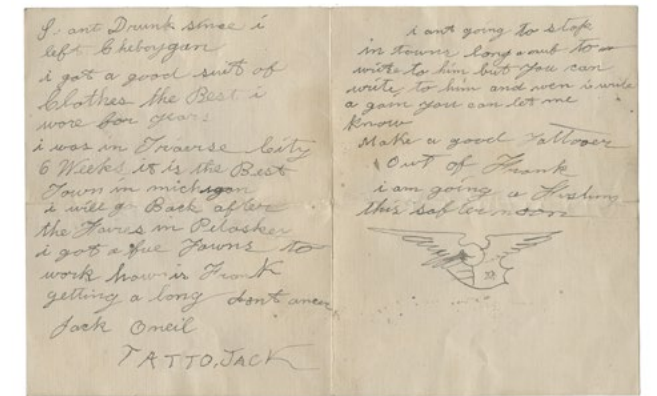 I ant Drunk since i
left Cheboygan
i got a good suit of
Clothes the Best i
wore for years
i was in Traverse City
6 Weeks it is the Best
Town in michigan
i will go Back after
the Faires in Petoskey
i got a fue Towns to
work how is Frank
getting a long dont ancer
Jack Oneil
TATTO, JACK
i ant going to stop
in towns long anuf to
write to him but you can
write to him and wen i write
a gain you can let me
know
Make a good Tattooer
Out of Frank
i am going a Fishing
this softernoon